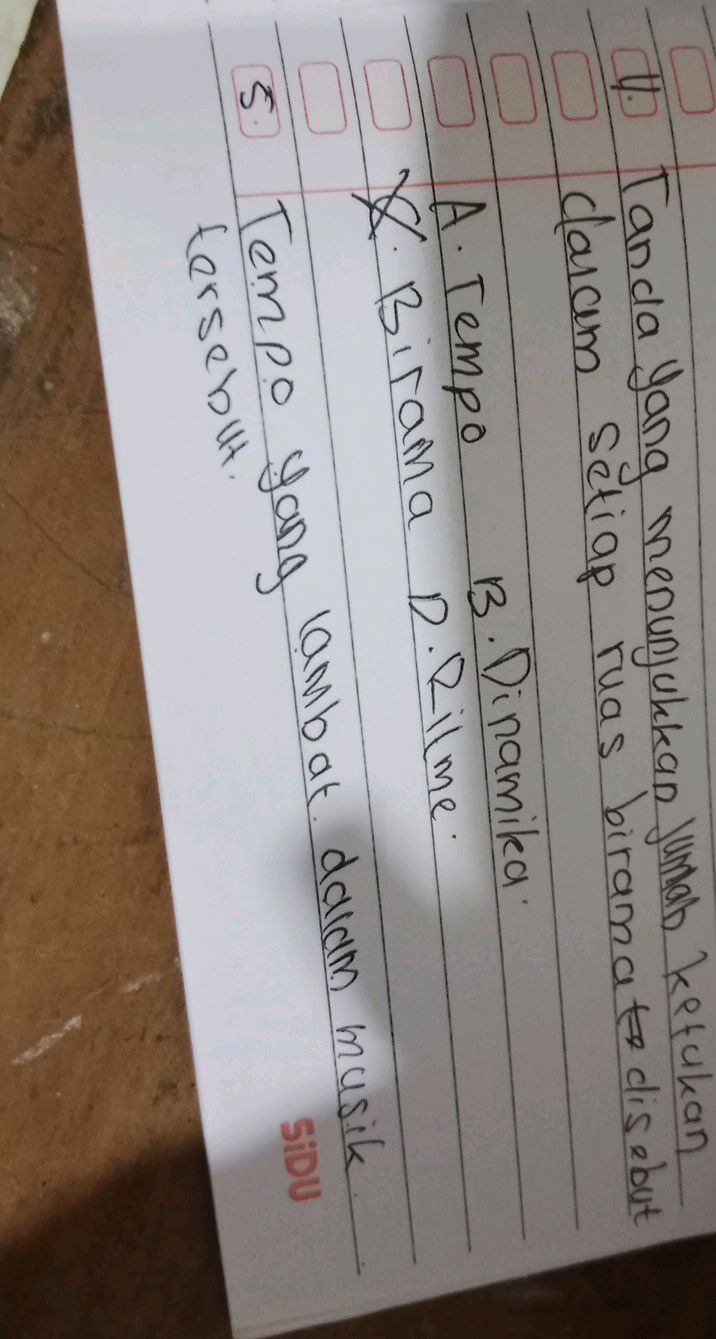 4. Tanda yang menunjukkan jumlah ketukan
dalam setiap ruas birama disebut
A. Tempo B. Dinamika.
C. Birama D. Ritme.
5. Tempo yang lambat dalam musik
tersebut.
SiDU